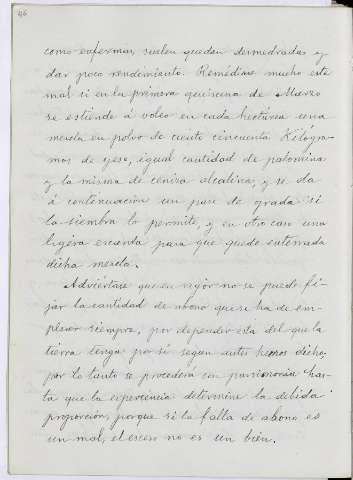 46
como enfermas, suelen quedar desmedradas y
dar poco rendimiento. Remédiase mucho este
mal si en la primera quincena de Marzo
se estiende á voleo en cada hectárea una
mezcla en polvo de ciento cincuenta Kilógra-
mos de yeso, igual cantidad de palomina
y la misma de ceniza alcalina, y se da
á continuacion un pase de grada si
la siembra lo permite, y en otro caso una
ligera escarda para que quede enterrada
dicha mezcla.
Adviértase que en rigor no se puede fi-
jar la cantidad de abono que se ha de em-
plear siempre, por depender esta del que la
tierra tenga por sí segun antes hemos dicho,
por lo tanto se procederá con parsimonia has-
ta que la esperiencia determine la debida
proporcion, porque si la falta de abono es
un mal, el esceso no es un bien.